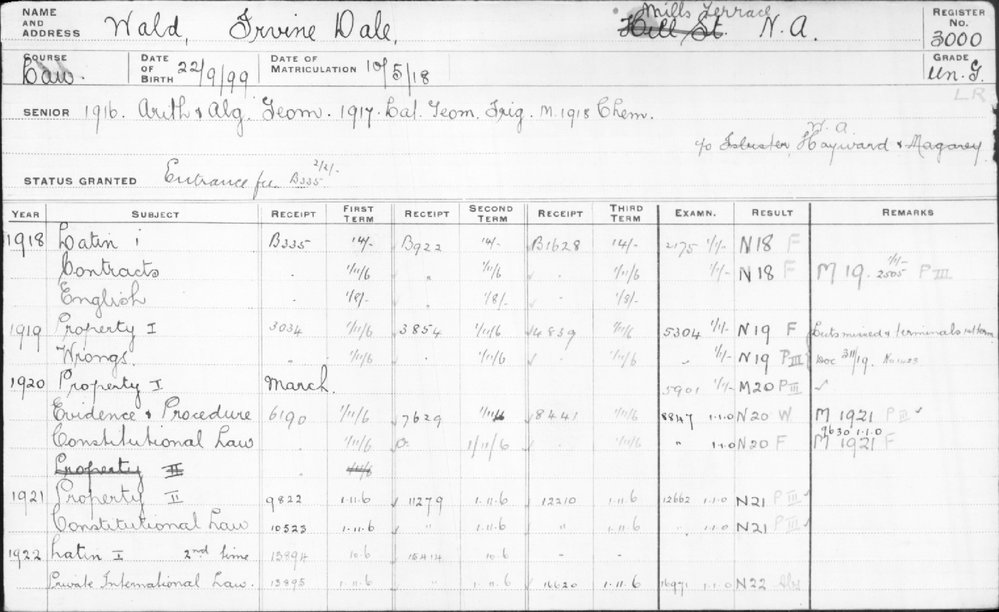 NAME AND ADDRESS Wald, Irvine Dale, Hill St. Mills Terrace N.A. REGISTER No. 3000
COURSE Law. DATE OF BIRTH 22/9/99 DATE OF MATRICULATION 10/5/18 GRADE Un. G.
LR
SENIOR 1916. Arith & Alg. Geom. 1917. Lat. Geom. Trig. M. 1918 Chem.
N.A.
c/o Isbister, Hayward & Magarey
STATUS GRANTED Entrance fee B335 2/2/-
YEAR SUBJECT RECEIPT FIRST TERM RECEIPT SECOND TERM RECEIPT THIRD TERM EXAMN. RESULT REMARKS
1918 Latin i B335 14/- B922 14/- B1628 14/- 2175 1/1/- N18 F
Contracts . 1/11/6 " 1/11/6 . 1/11/6 1/1/- N18 F M 19. 1/1/- 2505 P III
English . 1/8/- 1/8/- . 1/8/-
1919 Property I 3034 1/11/6 3854 1/11/6 4839 1/11/6 5304 1/1/- N19 F & terminals
Wrongs. . 1/11/6 1/11/6 . 1/11/6 " 1/1/- N19 P III Doc 311/19.
1920 Property I March. 5901 1/1/- M20 P III ✓
Evidence & Procedure 6190 1/11/6 7629 1/11/6 8441 1/11/6 8847 1.1.0 N20 W M 1921 P III ✓
Constitutional Law 1/11/6 1/11/6 1/11/6 " 1.1.0 N20 F 9630 1.1.0 M 1921 F
Property II
1921 Property II 9822 1.11.6 11279 1.11.6 12210 1.11.6 12662 1.1.0 N21 P III ✓
Constitutional Law 10523 1.11.6 " 1.11.6 " 1.11.6 " 1.1.0 N21 P III ✓
1922 Latin I 2nd time 13894 10.6 15414 10.6 - -
Private International Law. 13895 1.11.6 " 1.11.6 16620 1.11.6 16971 1.1.0 N22 Abs